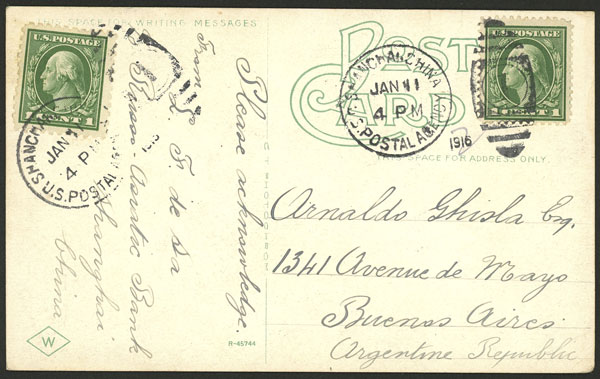 THIS SPACE FOR WRITING MESSAGES
U.S. POSTAGE
CENT 1
SHANGHAI
JAN 11
4 PM
U.S. POSTAL
1916
Please acknowledge.
From
F de Sa
Russo-Asiatic Bank
Shanghai
China
W
R-45744
POST
CARD
SHANGHAI CHINA
JAN 11
4 PM
U.S. POSTAL AGENCY
1916
U.S. POSTAGE
1 CENT 1
THIS SPACE FOR ADDRESS ONLY.
Arnaldo Ghisla Esq.
1341 Avenue de Mayo
Buenos Aires.
Argentine Republic